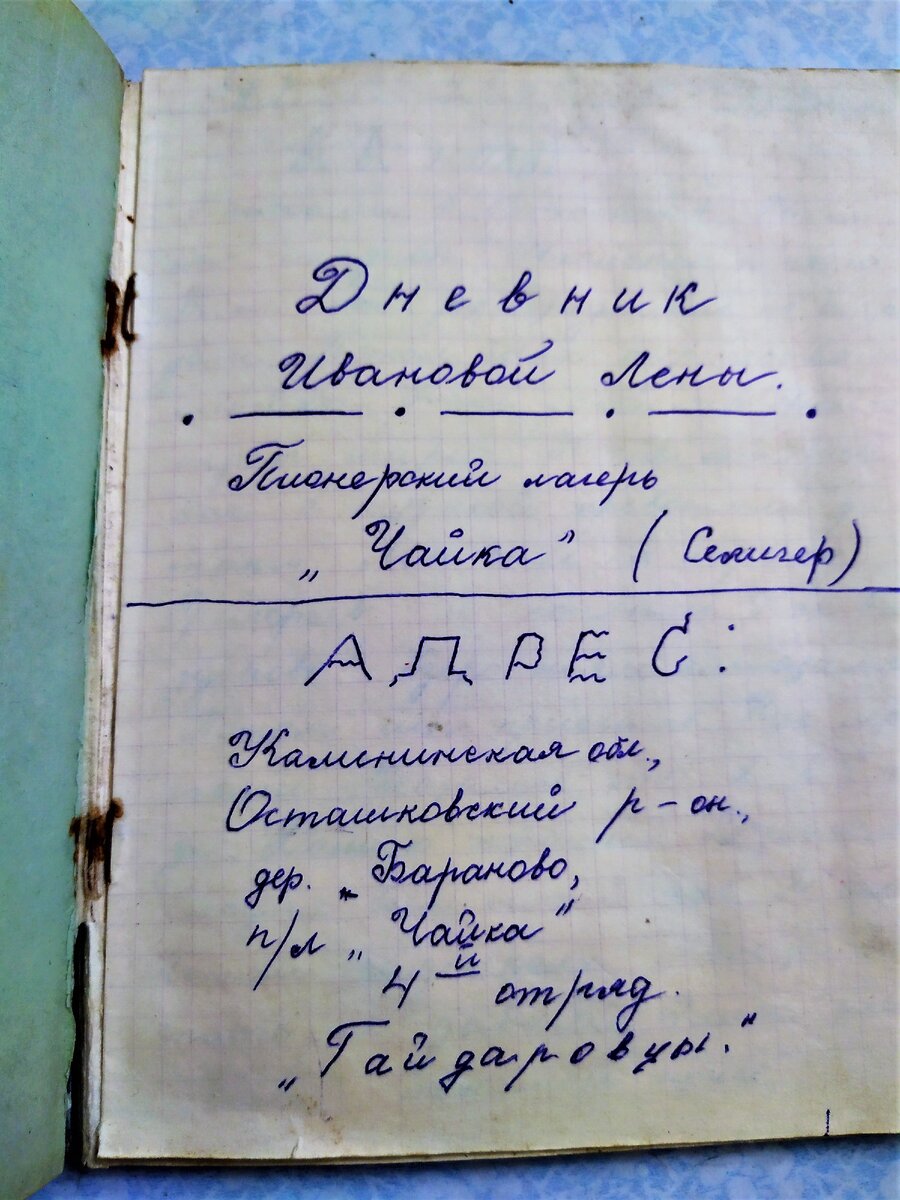 Дневник
Ивановой Лены.
Пионерский лагерь
„Чайка” (Селигер)
АДРЕС:
Калининская обл.,
Осташковский р-он.,
дер. „Бараново,
п/л „Чайка”
4й отряд.
„Гайдаровцы.”